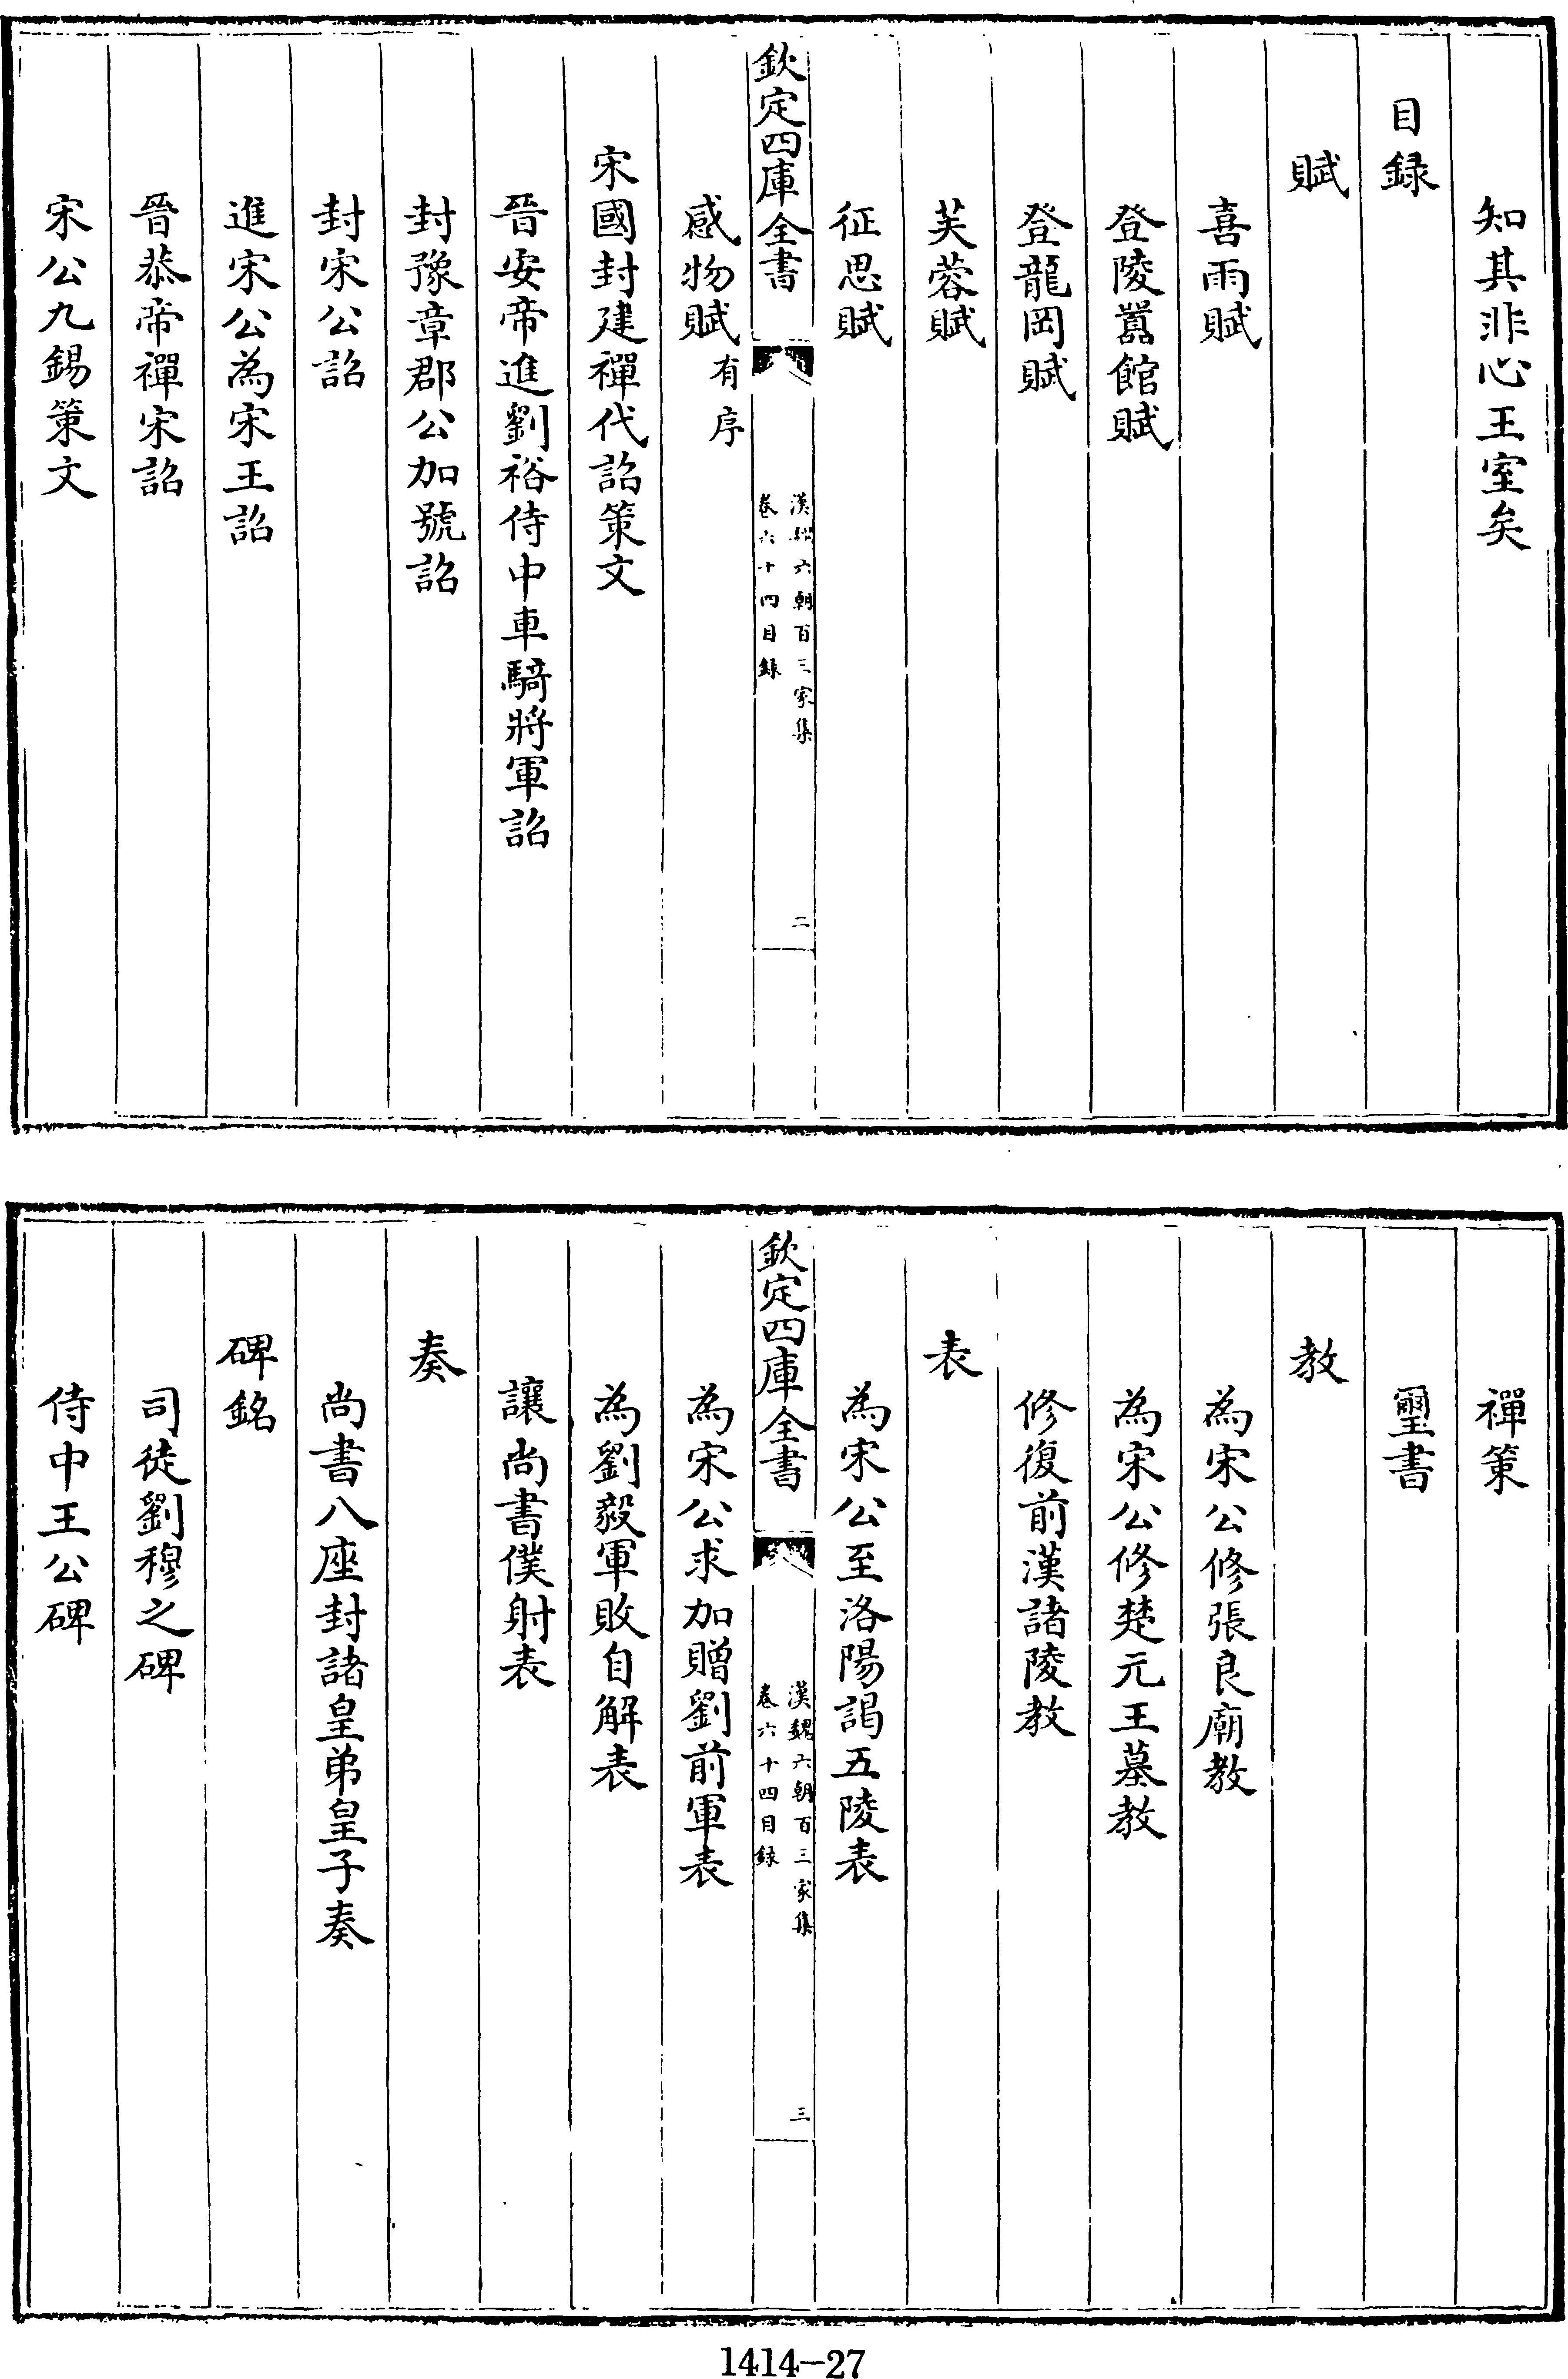 知其非心王室矣
目録
賦
喜雨賦
登陵囂館賦
登龍岡賦
芙蓉賦
征思賦
欽定四庫全書
漢魏六朝百三家集
卷六十四目録
二
感物賦有序
宋國封建禪代詔策文
晉安帝進劉裕侍中車騎將軍詔
封豫章郡公加號詔
封宋公詔
進宋公為宋王詔
晉恭帝禪宋詔
宋公九錫策文
禪策
璽書
教
為宋公修張良廟教
為宋公修楚元王墓教
修復前漢諸陵教
表
為宋公至洛陽謁五陵表
欽定四庫全書
漢魏六朝百三家集
卷六十四目録
三
為宋公求加贈劉前軍表
為劉毅軍敗自解表
讓尚書僕射表
奏
尚書八座封諸皇弟皇子奏
碑銘
司徒劉穆之碑
侍中王公碑
1414-27